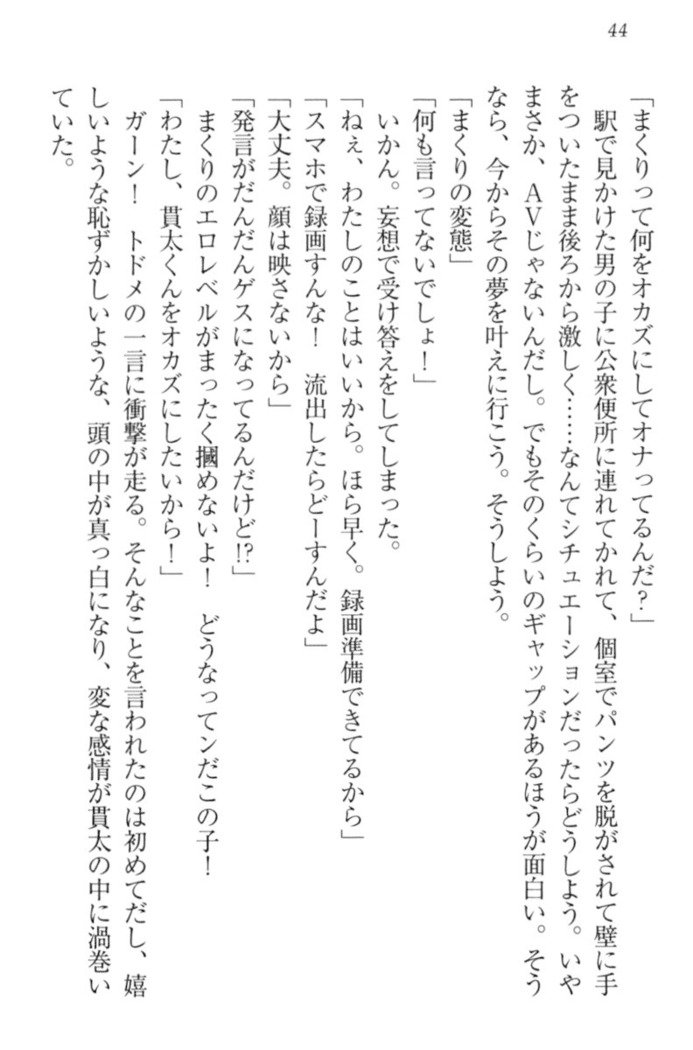 44
「まくりって何をオカズにしてオナってるんだ？」
駅で見かけた男の子に公衆便所に連れてかれて、個室でパンツを脱がされて壁に手
をついたまま後ろから激しく……なんてシチュエーションだったらどうしよう。いや
まさか、ＡＶじゃないんだし。でもそのくらいのギャップがあるほうが面白い。そう
なら、今からその夢を叶えに行こう。そうしよう。
「まくりの変態」
「何も言ってないでしょ！」
いかん。妄想で受け答えをしてしまった。
「ねぇ、わたしのことはいいから。ほら早く。録画準備できてるから」
「スマホで録画すんな！　流出したらどーすんだよ」
「大丈夫。顔は映さないから」
「発言がだんだんゲスになってるんだけど!?」
まくりのエロレベルがまったく摑めないよ！　どうなってンだこの子！
「わたし、貫太くんをオカズにしたいから！」
ガーン！　トドメの一言に衝撃が走る。そんなことを言われたのは初めてだし、嬉
しいような恥ずかしいような、頭の中が真っ白になり、変な感情が貫太の中に渦巻い
ていた。